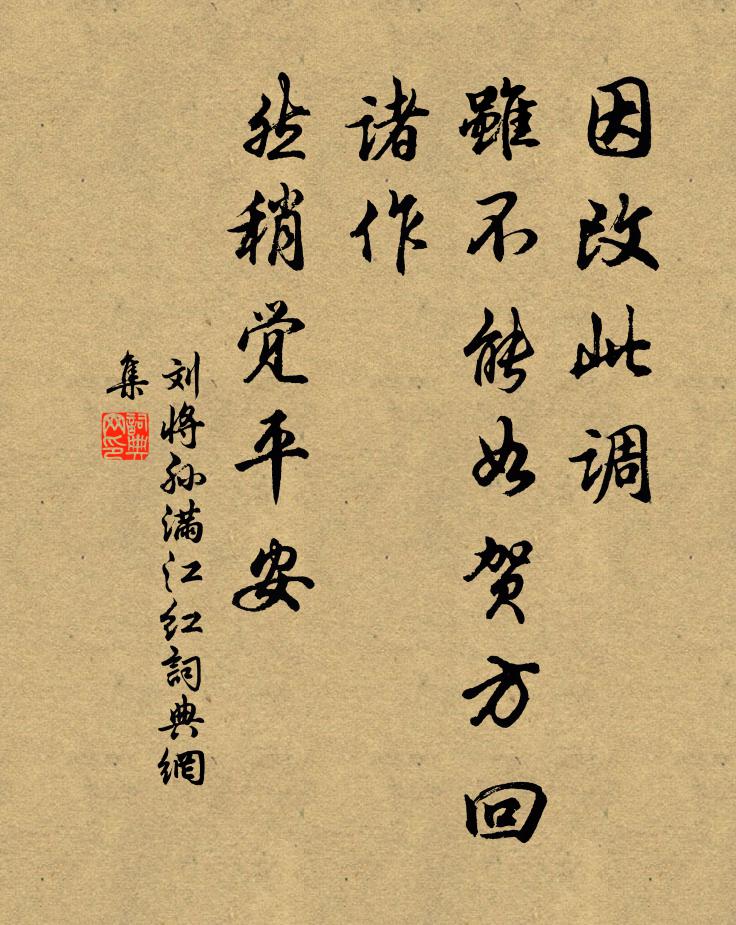 因改此调
虽不能如贺方回
诸作
然稍觉平安
刘将孙满江红詞典網
集
詞典
网印